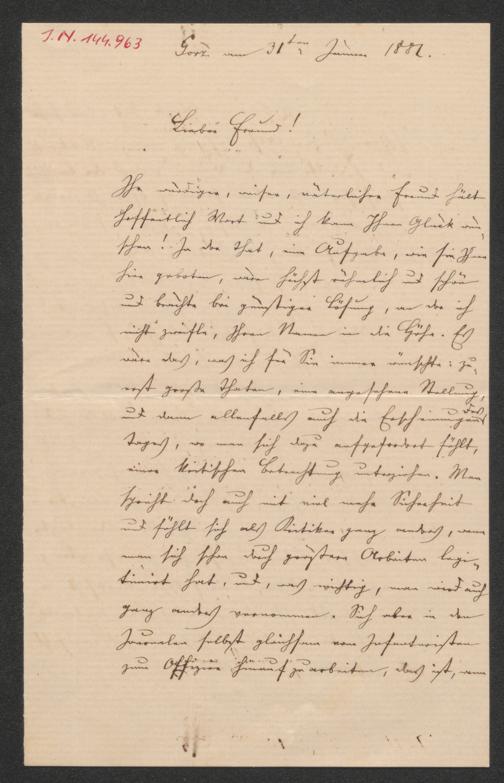 J.N. 144.963
Görz am 31ten Jänner 1882.
Lieber Freund!
Ihr würdiger, weiser, väterlicher Freund hält
hoffentlich Wort und ich kann Ihnen Glück wün-
schen! In der That, eine Aufgabe, wie sie Ihnen
hier geboten, wäre höchst rühmlich und schön
und brächte bei günstiger Lösung, an der ich
nicht zweifle, Ihren Namen in die Höhe. Es
wäre das, was ich für Sie immer wünschte: zu-
erst große Thaten, eine angesehene Stellung,
und dann allenfalls auch die Erscheinungen des
Tages, wo man sich dazu aufgefordert fühlt,
einer kritischen Betrachtung unterziehen. Man
spricht doch auch mit viel mehr Sicherheit
und fühlt sich als Kritiker ganz anders, wenn
man sich schon durch größere Arbeiten legi-
timirt hat, und, was wichtig, man wird auch
ganz anders vernommen. Sich aber in den
Journalen selbst gleichsam vom Infanteristen
zum Offizier hinauf zu arbeiten, das ist, wenn